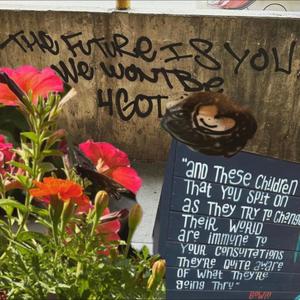 THE FUTURE IS YOU
WE WON'T BE
4GOT
"AND THESE CHILDREN
THAT YOU SPIT ON
AS THEY TRY TO CHANGE
THEIR WORLD
ARE IMMUNE TO
YOUR CONSULTATIONS
THEY'RE QUITE AWARE
OF WHAT THEY'RE
GOING THRU"
BOWIE